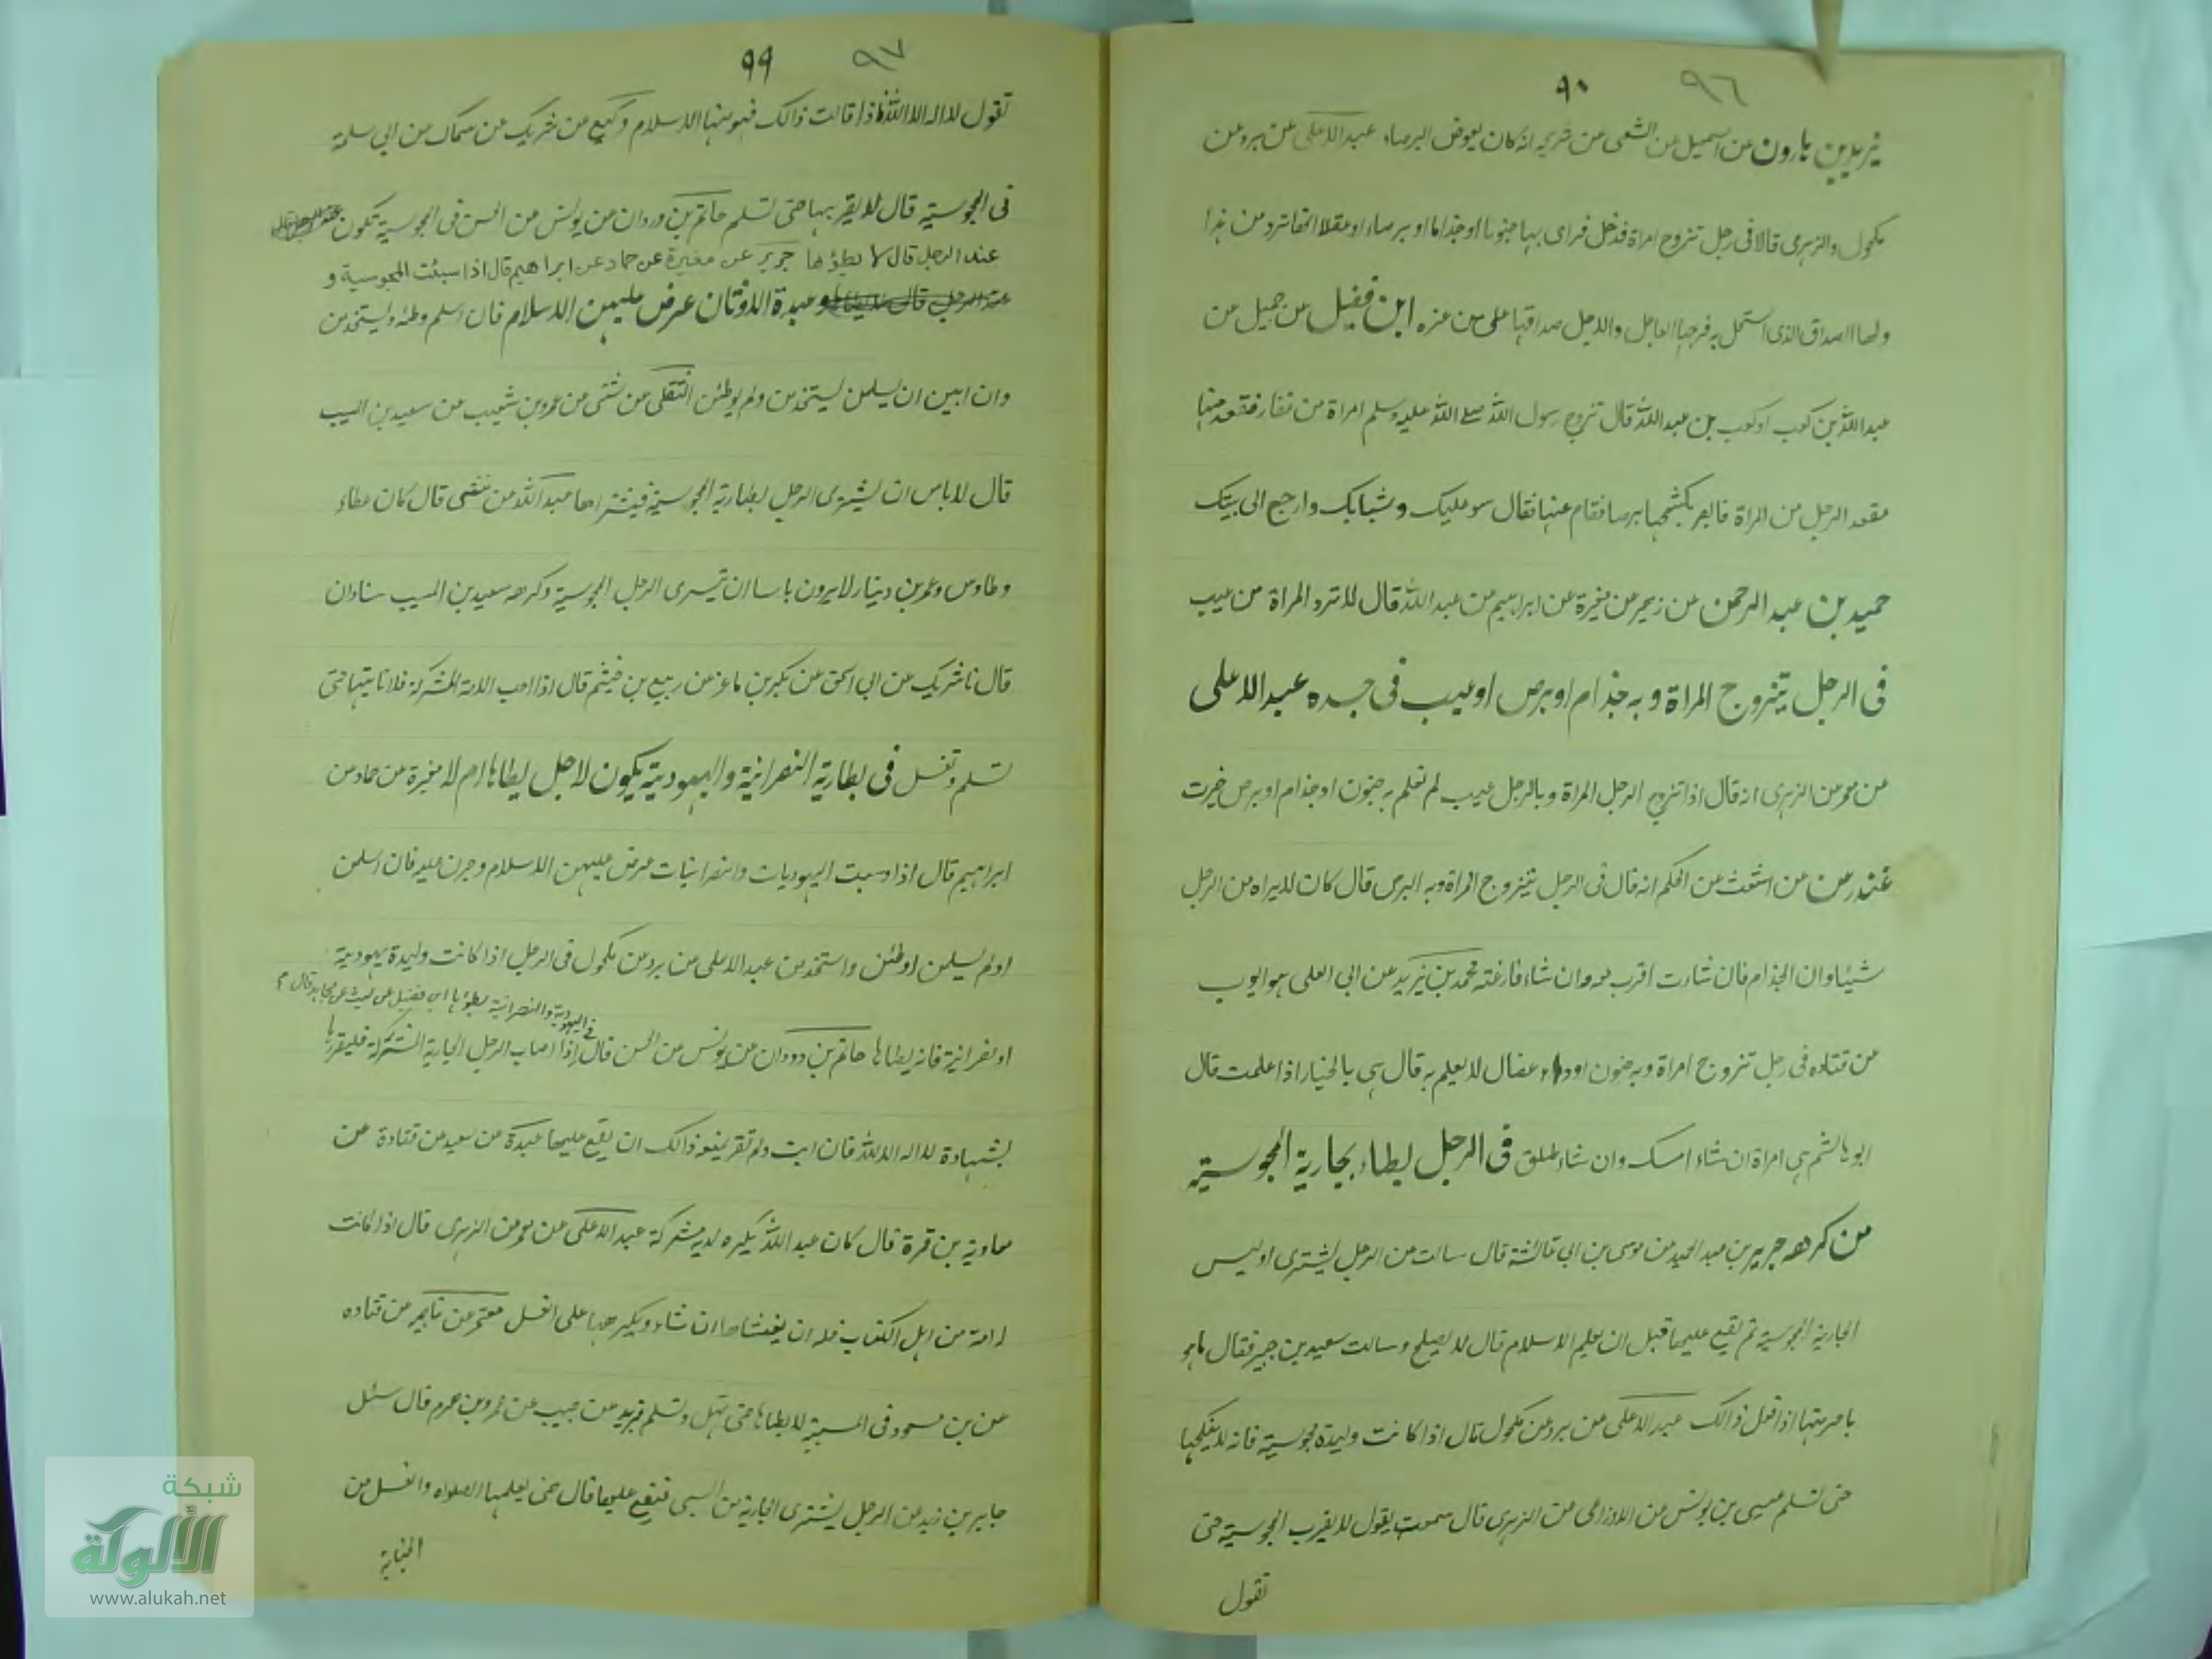 ٩٦ ٩٠
يزيد بن هارون عن اسمعيل عن الشعبي عن شريح انه كان يعوض البرصاء عبد الاعلى عن برد عن
مكحول والزهري قالا في رجل تزوج امراة فدخل فراى بها جنونا او جذاما او برصاء او عفلا انها ترد من هذا
ولها الصداق الذي استحل به فرجها العاجل والاجل صداقها على من غره ابن فضيل عن جميل عن
عبد الله بن كعب او كعب بن عبد الله قال تزوج رسول الله صلے الله عليه وسلم امراة من غفار فقعد منها
مقعد الرجل من المراة فابصر بكشحها برصا فقام عنها فقال سو عليك وثيابك وارجع الى بيتك
حميد بن عبد الرحمن عن زهير عن مغيرة عن ابراهيم عن عبد الله قال لا ترد المراة من عيب
في الرجل يتزوج المراة وبه جذام او برص او عيب في جسده عبد الاعلى
عن معمر عن الزهري انه قال اذا تزوج الرجل المراة وبالرجل عيب لم تعلم به جنون او جذام او برص خيرت
غندر عن عن اشعث عن الحكم انه قال في الرجل يتزوج المراة وبه البرص قال كان لا يراه من الرجل
شيئا وان الجذام فان شاءت اقرب معه وان شاء فارغته محمد بن يزيد عن ابي العلى هو ايوب
عن قتاده في رجل تزوج امراة وبه جنون او داء عضال لا يعلم به قال هي بالخيار اذا علمت قال
ابو هاشم هي امراة ان شاء امسك وان شاء طلق في الرجل يطاء بجارية المجوسية
من كرهه جرير بن عبد الحميد عن موسى بن ابي عائشة قال سالت عن الرجل يشترى او يس
الجارية المجوسية ثم يقع عليها قبل ان يعلم الاسلام قال لا يصلح وسالت سعيد بن جبير فقال ما هو
باصر منها اذا فعل ذالك عبد الاعلى عن برد عن مكحول قال اذا كانت وليدة مجوسية فانه لا ينكحها
حتى تسلم عيسى بن يونس عن الاوزاعي عن الزهري قال سمعت يقول لا يقرب المجوسية حتى
تقول
٩٧ ٩٩
تقول لا اله الا الله فاذا قالت ذالك فهو منها الاسلام وكيع عن شريك عن سماك عن ابي سلمة
في المجوسية قال لا يقربها حتى تسلم حاتم بن وردان عن يونس عن الحسن في المجوسية تكون
عند الرجل قال لا يطؤها جرير عن مغيرة عن حماد عن ابراهيم قال اذا سبئت المجوسية و
وعبدة الاوثان عرض عليهن الاسلام فان اسلم وطئه ويستخدمن
وان ابين ان يسلمن ليستخدمن ولم يوطئن الثقفي عن مثنى عن عمرو بن شعيب عن سعيد بن المسيب
قال لا باس ان يشترى الرجل بجارية المجوسية فيتسراها عبد الله عن مثنى قال كان عطاء
وطاوس وعمرو بن دينار لا يرون باسا ان يتسرى الرجل المجوسية وكرهه سعيد بن المسيب شاذان
قال نا شريك عن ابي اسحق عن بكير بن ماعز عن ربيع بن خيثم قال اذا اصب الامة المشركة فلا تاتيها حتى
تسلم وتغسل في بطارية النصرانية واليهودية يكون لاجل يطاها ام لا مغيرة عن حماد عن
ابراهيم قال اذا وسبت اليهوديات والنصرانيات عرض عليهن الاسلام وجرن عليه فان اسلمن
اولم يسلمن اوطئن واستخدمن عبد الاعلى عن برد عن مكحول في الرجل اذا كانت وليدة يهودية
او نصرانية فانه يطاها حاتم بن وردان عن يونس عن الحسن قال في اليهودية والنصرانية يطؤها ابن فضيل عن ليث عن مجاهد قال اذا اصاب الرجل الجارية المشركة فليقررها
بشهادة لا اله الا الله فان ابت ولم تقر يمنعه ذالك ان يقع عليها عبدة عن سعيد عن قتادة عن
معاوية بن قرة قال كان عبد الله يكره لامة مشركة عبد الاعلى عن معمر عن الزهري قال اذا كانت
له امة من اهل الكتاب فله ان يغشاها ان شاء ويكرهها على الغسل معتمر عن عن قتاده
عن بن مسعود في المسبية لا يطاها حتى تهل وتسلم يزيد عن حبيب عن عمرو بن هرم قال سئل
جابر بن زيد عن الرجل يشترى الجارية من السبي فيقع عليها قال حتى يعلمها الصلواه والغسل من
الجنابة
شبكة
الألوكة
www.alukah.net